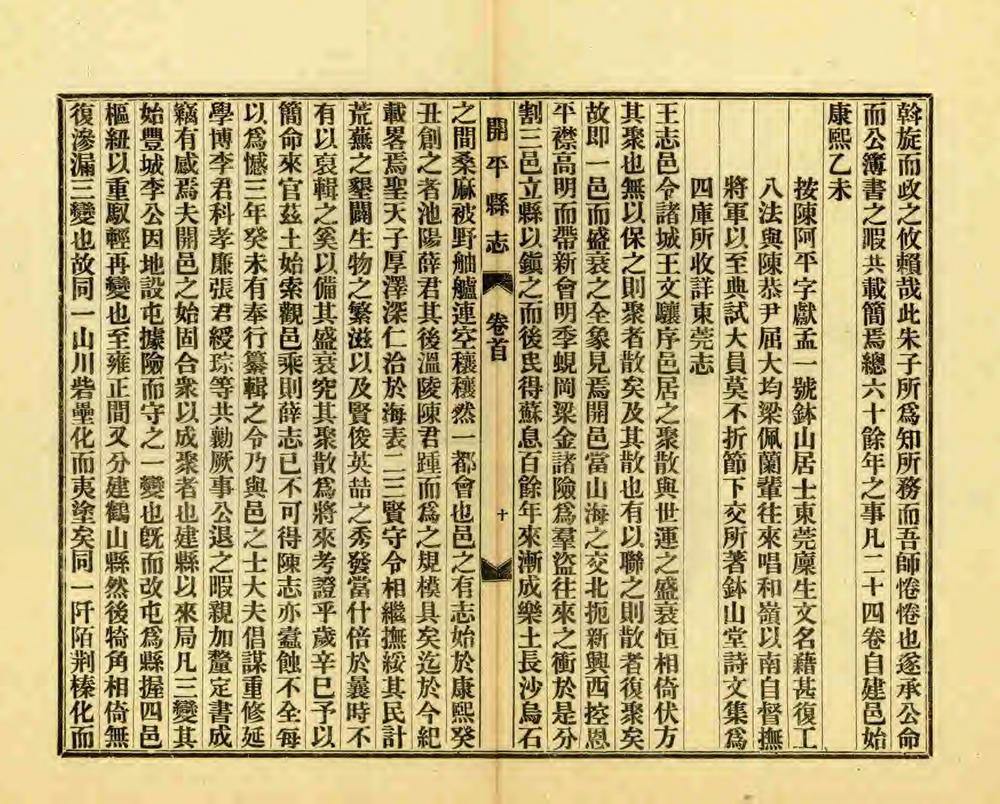 斡旋而政之攸賴哉此朱子所爲知所務而吾師惓惓也遂承公命
而公簿書之暇共載簡焉總六十餘年之事凡二十四卷自建邑始
康熙乙未
按陳阿平字獻孟一號鉢山居士東莞廩生文名藉甚復工
八法與陳恭尹屈大均梁佩蘭輩往來唱和嶺以南自督撫
將軍以至典試大員莫不折節下交所著鉢山堂詩文集爲
四庫所收詳東莞志
王志邑令諸城王文驤序邑居之聚散與世運之盛衰恒相倚伏方
其聚也無以保之則聚者散矣及其散也有以聯之則散者復聚矣
故即一邑而盛衰之全象見焉開邑當山海之交北扼新興西控恩
平襟高明而帶新會明季蜆岡梁金諸險爲羣盜往來之衝於是分
割三邑立縣以鎭之而後民得蘇息百餘年來漸成樂土長沙烏石
開平縣志
卷首
十
之間桑麻被野舳艫連空穰穰然一都會也邑之有志始於康熙癸
丑創之者池陽薛君其後溫陵陳君踵而爲之規模具矣迄於今紀
載畧焉聖天子厚澤深仁洽於海表二三賢守令相繼撫綏其民計
荒蕪之墾闢生物之繁滋以及賢俊英喆之秀發當什倍於曩時不
有以裒輯之奚以備其盛衰究其聚散爲將來考證乎歲辛巳予以
簡命來官茲土始索觀邑乘則薛志已不可得陳志亦蠹蝕不全每
以爲憾三年癸未有奉行纂輯之令乃與邑之士大夫倡謀重修延
學博李君科孝廉張君綬琮等共勷厥事公退之暇親加釐定書成
竊有感焉夫開邑之始固合衆以成聚者也建縣以來局凡三變其
始豐城李公因地設屯據險而守之一變也旣而改屯爲縣握四邑
樞紐以重馭輕再變也至雍正間又分建鶴山縣然後犄角相倚無
復滲漏三變也故同一山川砦壘化而夷塗矣同一阡陌荆榛化而